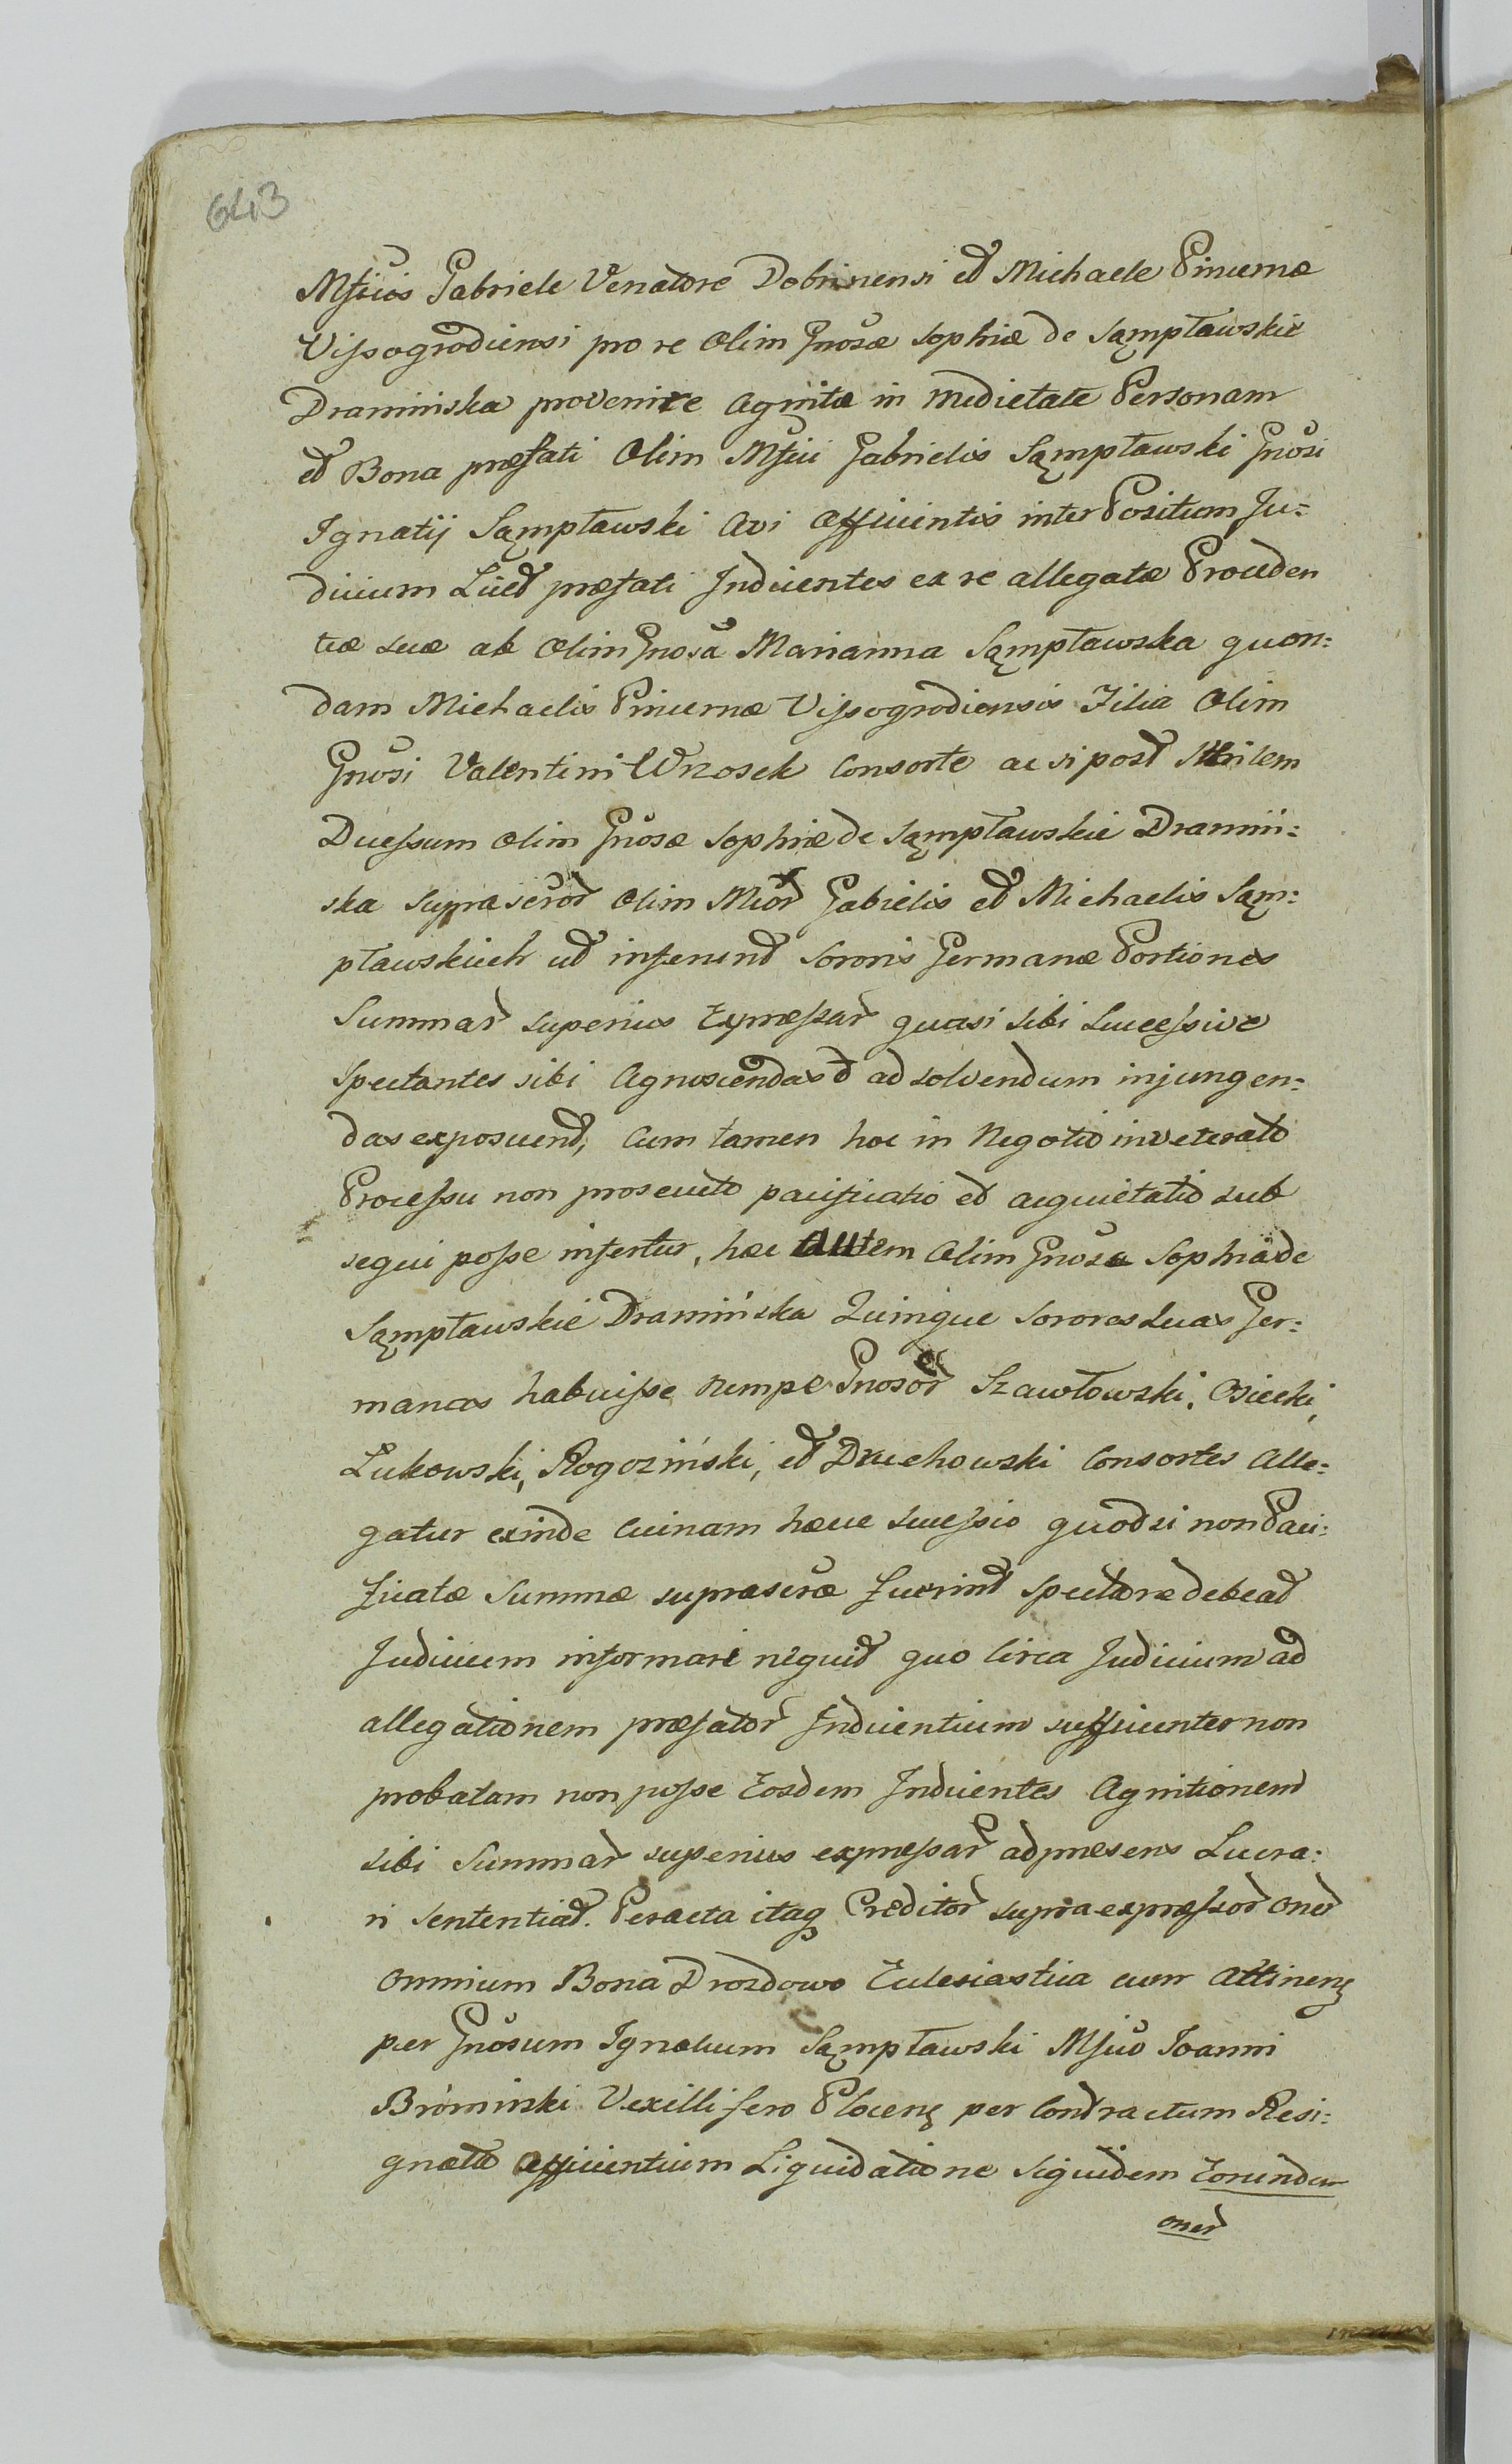 643
Mfcios Gabriele Venatore Dobrinensi et Michaele Pincerna
Vissogrodiensi pro re Olim Gnosæ Sophiæ de Sąmpławskie
Dramińska provenire Agnitæ in medietate Personam
et Bona præfati Olim Mfici Gabrielis Sąmpławski Gnosi
Ignatij Sąmpławski Avi afficientis inter Positum Ju:
dicium Licet præfati Inducentes ex re allegatæ Proceden
tiæ suæ ab Olim Gnosa Marianna Sąmpławska quon:
dam Michaelis Pincernæ Vissogrodiensis Filia Olim
Gnosi Valentini Wrzosek Consorte ac si post Sterilem
Decessum olim Gnosæ Sophiæ de Sąmpławskie Dramiń:
ska suprascror Olim Mcor Gabrielis et Michaelis Sąm:
pławskich ut inferunt Sororis Germanæ Portiones
Summar superius Expressar quasi sibi Successive
Spectantes sibi Agnoscendas et ad solvendum injungen:
das exposuerint, Cum tamen hoc in Negotio inveterato
Processu non prosecuto pacificatio et acquietatio sub
sequi posse infertur, hæc autem Olim Gnosa Sophia de
Sąmpławskie Dramińska Quinque Sorores suas Ger:
manas habuisse nempe Gnosor Szawłowski, Osiecki,
Łukowski, Rogoziński, et Druchowski Consortes Alle:
gatur exinde Cuinam hæcce successio quodsi non Paci:
ficatæ Summæ suprascræ fuerint spectare debeat
Judicium informari nequit quo Circa Judicium ad
allegationem præfator Inducentium sufficienter non
probatam non posse Eosdem Inducentes Agnitionem
sibi Summar superius expressar ad præsens Lucra:
ri sententiat. Peracta itaq Creditor supra expressor oner
omnium Bona Drozdowo Ecclesiastica cum Attinen
per Gnosum Ignatium Sąmpławski Mfco Joanni
Bromirski Vexillifero Plocen per Contractum Resi:
gnata afficientium Liquidatione siquidem Eorundem
oner